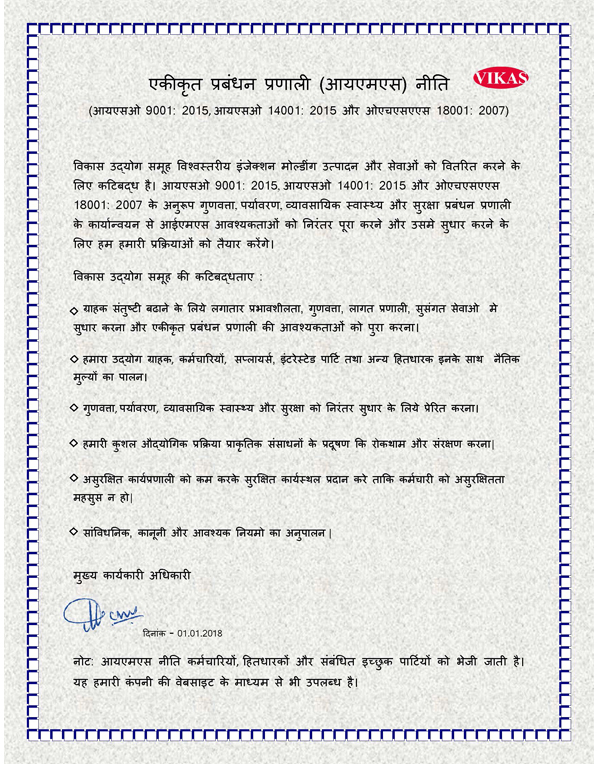 एकीकृत प्रबंधन प्रणाली (आयएमएस) नीति
VIKAS
(आयएसओ 9001: 2015, आयएसओ 14001: 2015 और ओएचएसएएस 18001: 2007)
विकास उद्योग समूह विश्वस्तरीय इंजेक्शन मोल्डींग उत्पादन और सेवाओं को वितरित करने के
लिए कटिबद्ध है। आयएसओ 9001: 2015, आयएसओ 14001: 2015 और ओएचएसएएस
18001: 2007 के अनुरूप गुणवत्ता, पर्यावरण, व्यावसायिक स्वास्थ्य और सुरक्षा प्रबंधन प्रणाली
के कार्यान्वयन से आईएमएस आवश्यकताओं को निरंतर पूरा करने और उसमे सुधार करने के
लिए हम हमारी प्रक्रियाओं को तैयार करेंगे।
विकास उद्योग समूह की कटिबद्धताए :
◇ ग्राहक संतुष्टी बढाने के लिये लगातार प्रभावशीलता, गुणवत्ता, लागत प्रणाली, सुसंगत सेवाओ मे
सुधार करना और एकीकृत प्रबंधन प्रणाली की आवश्यकताओं को पुरा करना।
◇ हमारा उद्योग ग्राहक, कर्मचारियों, सप्लायर्स, इंटरेस्टेड पार्टि तथा अन्य हितधारक इनके साथ नैतिक
मुल्यों का पालन।
◇ गुणवत्ता, पर्यावरण, व्यावसायिक स्वास्थ्य और सुरक्षा को निरंतर सुधार के लिये प्रेरित करना।
◇ हमारी कुशल औद्योगिक प्रक्रिया प्राकृतिक संसाधनों के प्रदूषण कि रोकथाम और संरक्षण करना|
◇ असुरक्षित कार्यप्रणाली को कम करके सुरक्षित कार्यस्थल प्रदान करे ताकि कर्मचारी को असुरक्षितता
महसुस न हो|
◇ सांविधनिक, कानूनी और आवश्यक नियमो का अनुपालन |
मुख्य कार्यकारी अधिकारी
दिनांक - 01.01.2018
नोट: आयएमएस नीति कर्मचारियों, हितधारकों और संबंधित इच्छुक पार्टियों को भेजी जाती है।
यह हमारी कंपनी की वेबसाइट के माध्यम से भी उपलब्ध है।